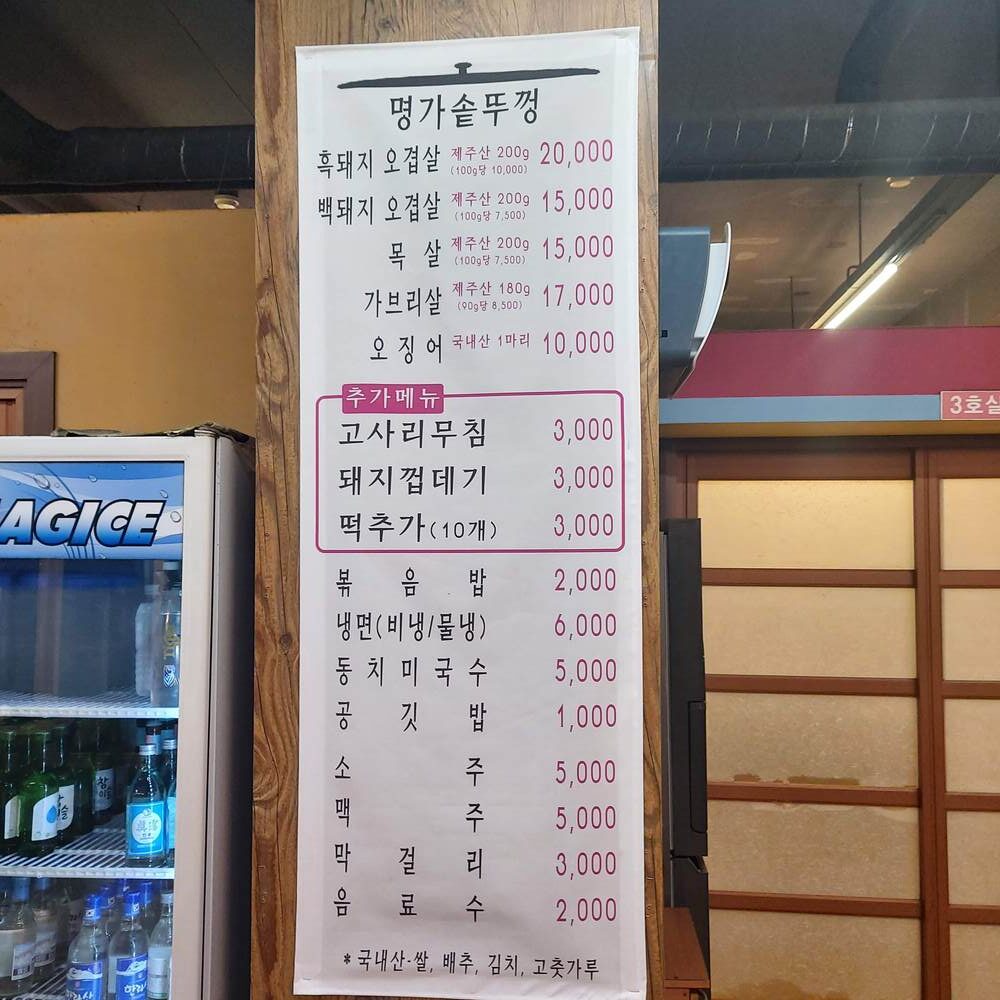 명가솥뚜껑
흑돼지 오겹살 제주산 200g (100g당 10,000) 20,000
백돼지 오겹살 제주산 200g (100g당 7,500) 15,000
목 살 제주산 200g (100g당 7,500) 15,000
가브리살 제주산 180g (90g당 8,500) 17,000
오징어 국내산 1마리 10,000
추가메뉴
고사리무침 3,000
돼지껍데기 3,000
떡추가(10개) 3,000
볶음밥 2,000
냉면(비냉/물냉) 6,000
동치미국수 5,000
공깃밥 1,000
소주 5,000
맥주 5,000
막걸리 3,000
음료수 2,000
*국내산-쌀, 배추, 김치, 고춧가루
AGICE
3호실
참이슬
한라산